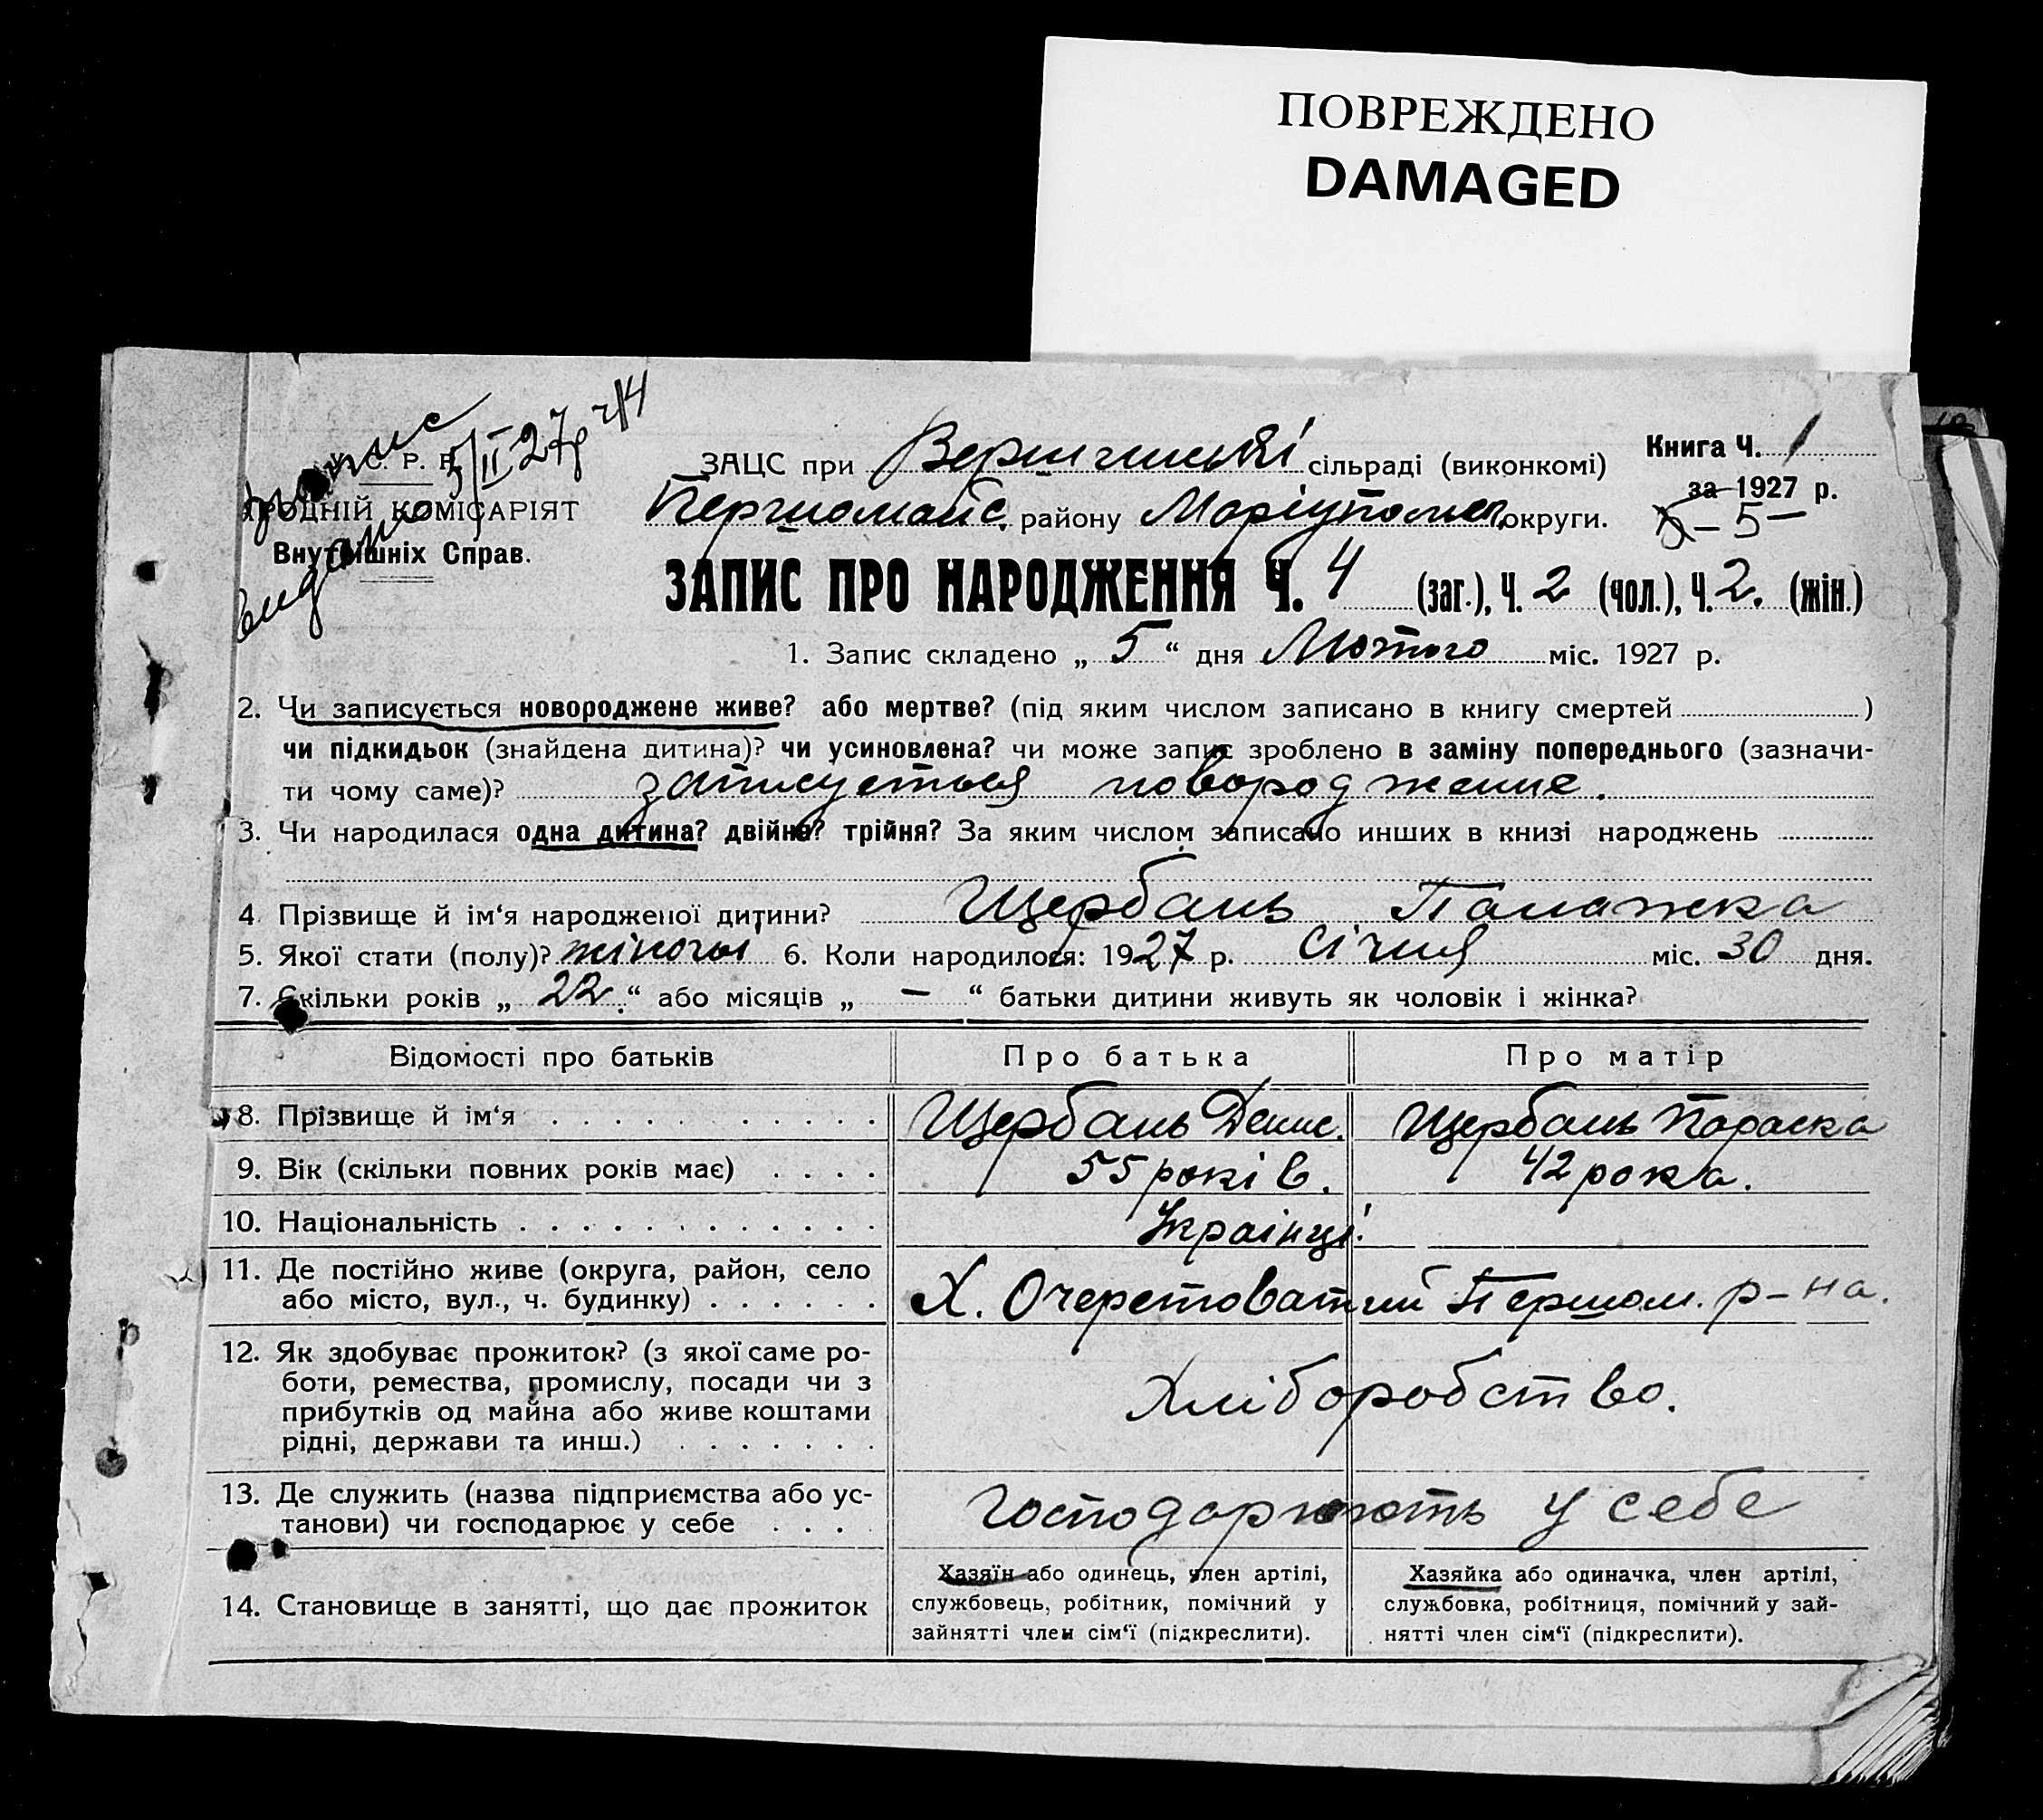 ПОВРЕЖДЕНО
DAMAGED
випис
видано 5/II 27р ч/4
У. С. Р. Р.
НАРОДНІЙ КОМІСАРІЯТ
Внутрішніх Справ.
ЗАЦС при сільраді (виконкомі) Книга Ч. 1
за 1927 р.
Першомайс. району Маріупольс. округи. – 5 –
ЗАПИС ПРО НАРОДЖЕННЯ Ч. 4 (заг.), Ч. 2 (чол.), Ч. 2. (жін.)
1. Запис складено „ 5 “ дня Лютого міс. 1927 р.
2. Чи записується новороджене живе? або мертве? (під яким числом записано в книгу смертей )
чи підкидьок (знайдена дитина)? чи усиновлена? чи може запис зроблено в заміну попереднього (зазначи-
ти чому саме)? записується новороджене.
3. Чи народилася одна дитина? двійня? трійня? За яким числом записано инших в книзі народжень
4. Прізвище й ім‘я народженої дитини? Щербань Палажка
5. Якої стати (полу)? жіночої 6. Коли народилося: 1927 р. Січня міс. 30 дня.
7. Скільки років „ 22 “ або місяців „ — “ батьки дитини живуть як чоловік і жінка?
Відомості про батьків Про батька Про матір
8. Прізвище й ім‘я Щербань Денис. Щербань Параска
9. Вік (скільки повних років має) 55 років. 42 рока.
10. Національність Украінці.
11. Де постійно живе (округа, район, село
або місто, вул., ч. будинку) Х. Очеретоватий Першом. р-на.
12. Як здобуває прожиток? (з якої саме ро-
боти, ремества, промислу, посади чи з
прибутків од майна або живе коштами
рідні, держави та инш.) Хліборобство.
13. Де служить (назва підприємства або ус-
танови) чи господарює у себе Господарюють у себе
14. Становище в занятті, що дає прожиток
Хазяїн або одинець, член артілі,
службовець, робітник, помічний у
зайнятті член сім‘ї (підкреслити).
Хазяйка або одиначка, член артілі,
службовка, робітниця, помічний у зай-
нятті член сім‘ї (підкреслити).